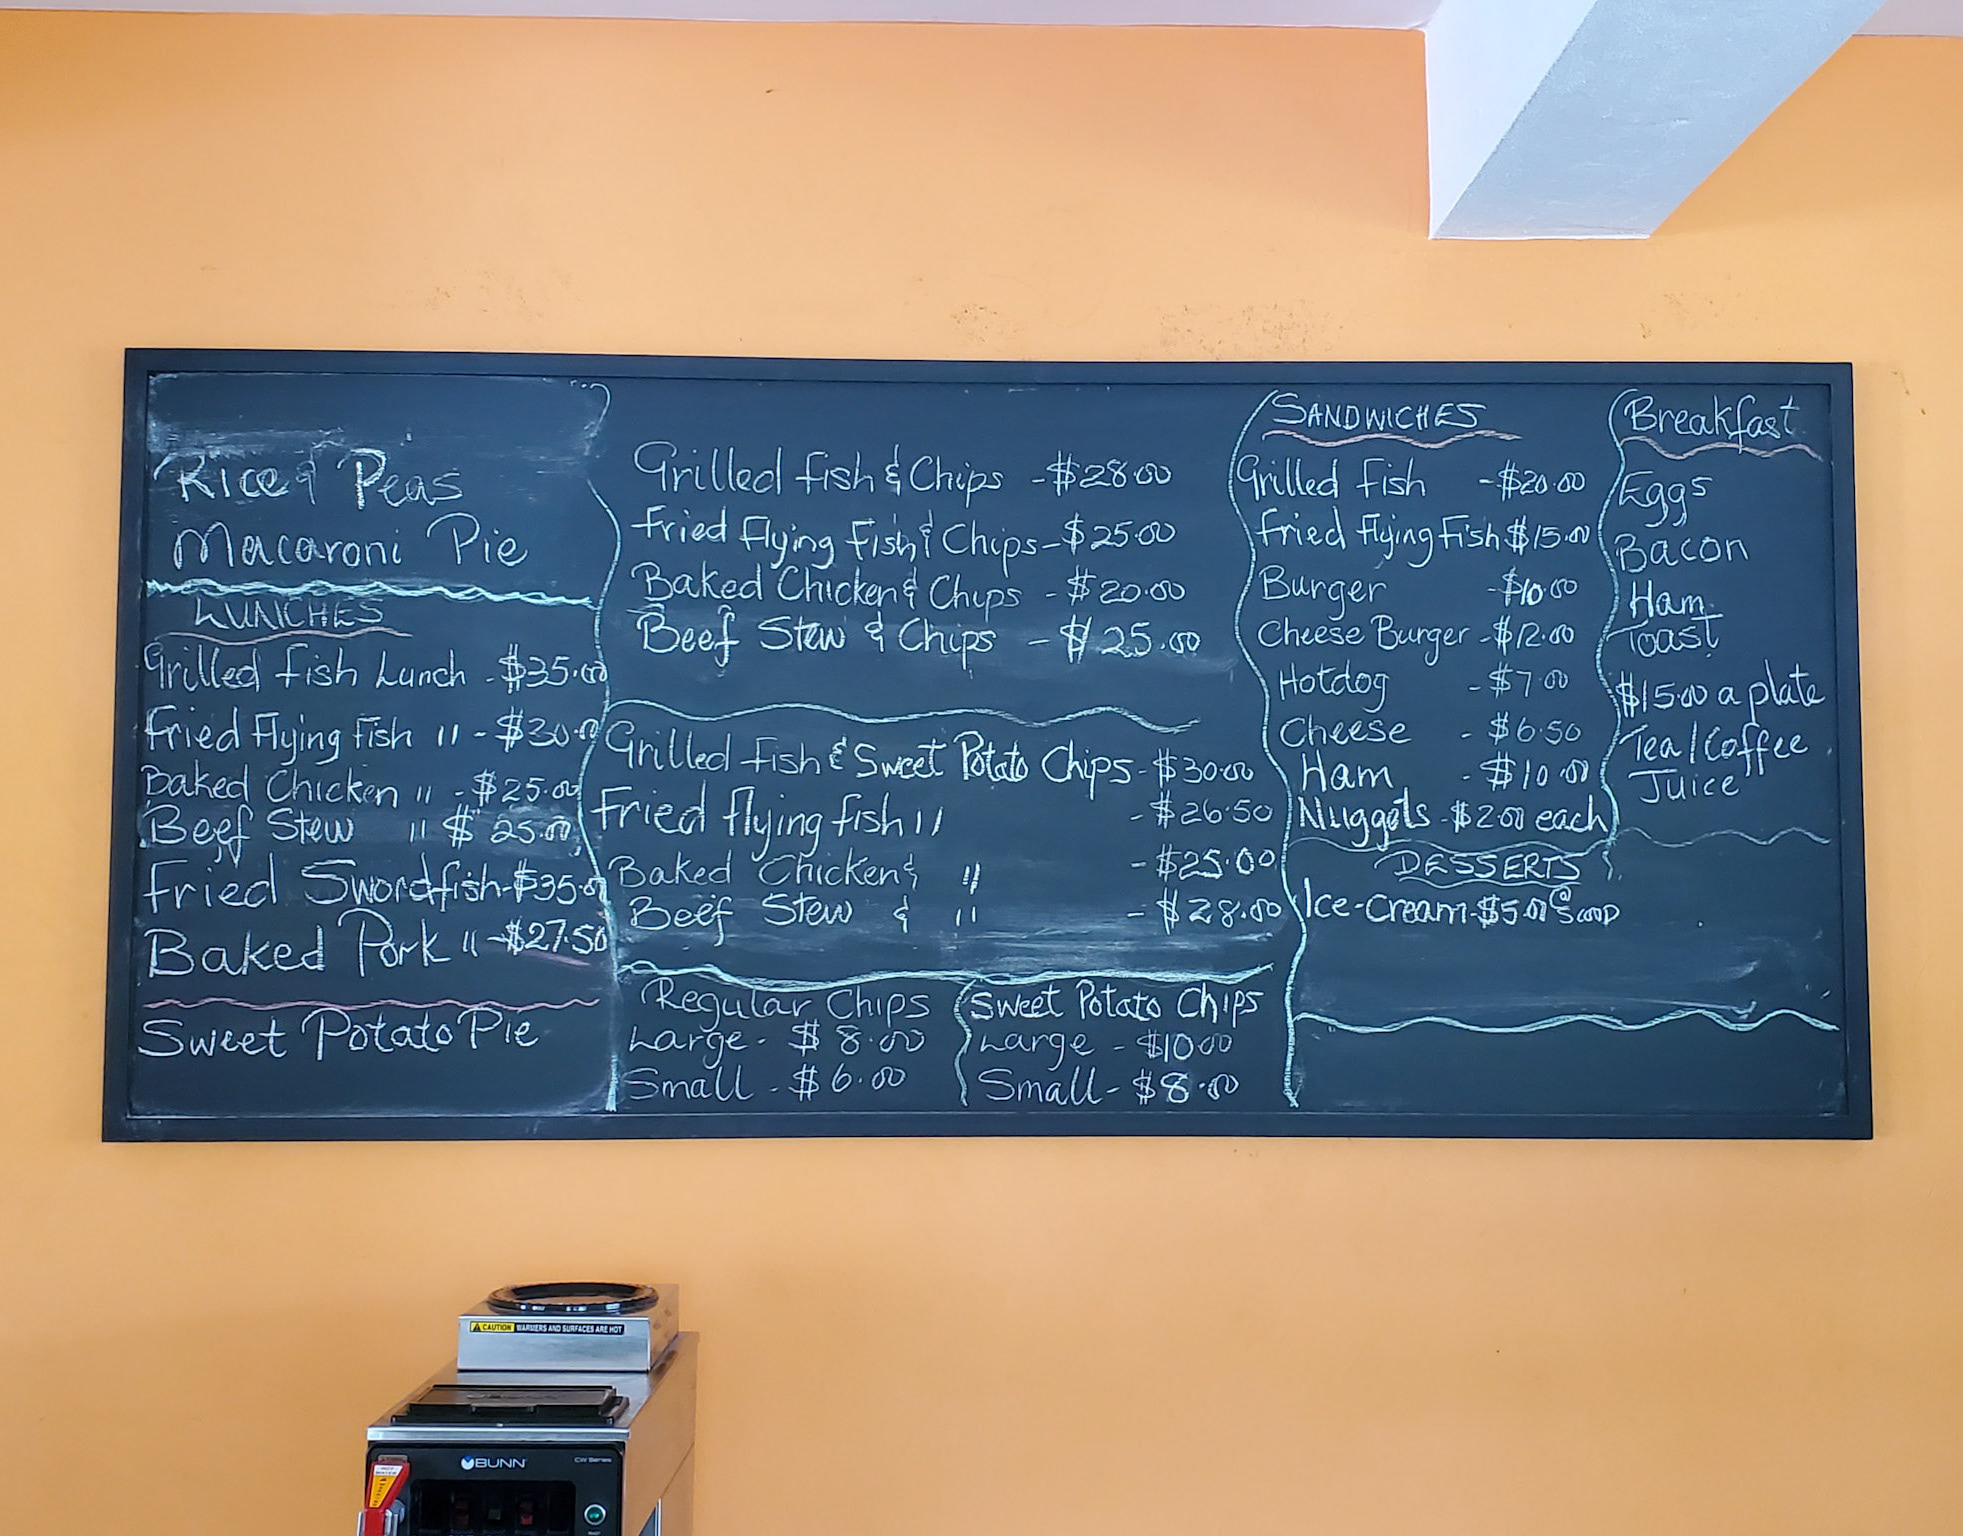 Rice & Peas
Macaroni Pie
LUNCHES
Grilled Fish Lunch - $35.00
Fried Flying Fish " - $30.00
Baked Chicken " - $25.00
Beef Stew " $25.00
Fried Swordfish - $35.00
Baked Pork " - $27.50
Sweet Potato Pie
Grilled Fish & Chips - $28.00
Fried Flying Fish & Chips - $25.00
Baked Chicken & Chips - $20.00
Beef Stew & Chips - $25.00
Grilled Fish & Sweet Potato Chips - $30.00
Fried flying fish " - $26.50
Baked Chicken & " - $25.00
Beef Stew & " - $28.00
Regular Chips
Large - $8.00
Small - $6.00
Sweet Potato Chips
Large - $10.00
Small - $8.00
SANDWICHES
Grilled Fish - $20.00
Fried Flying Fish $15.00
Burger - $10.00
Cheese Burger - $12.00
Hotdog - $7.00
Cheese - $6.50
Ham - $10.00
Nuggets - $2.00 each
DESSERTS
Ice-cream - $5.00 @ Scoop
Breakfast
Eggs
Bacon
Ham
Toast
$15.00 a plate
Tea/Coffee
Juice
CAUTION WARMERS AND SURFACES ARE HOT
BUNN
CW Series